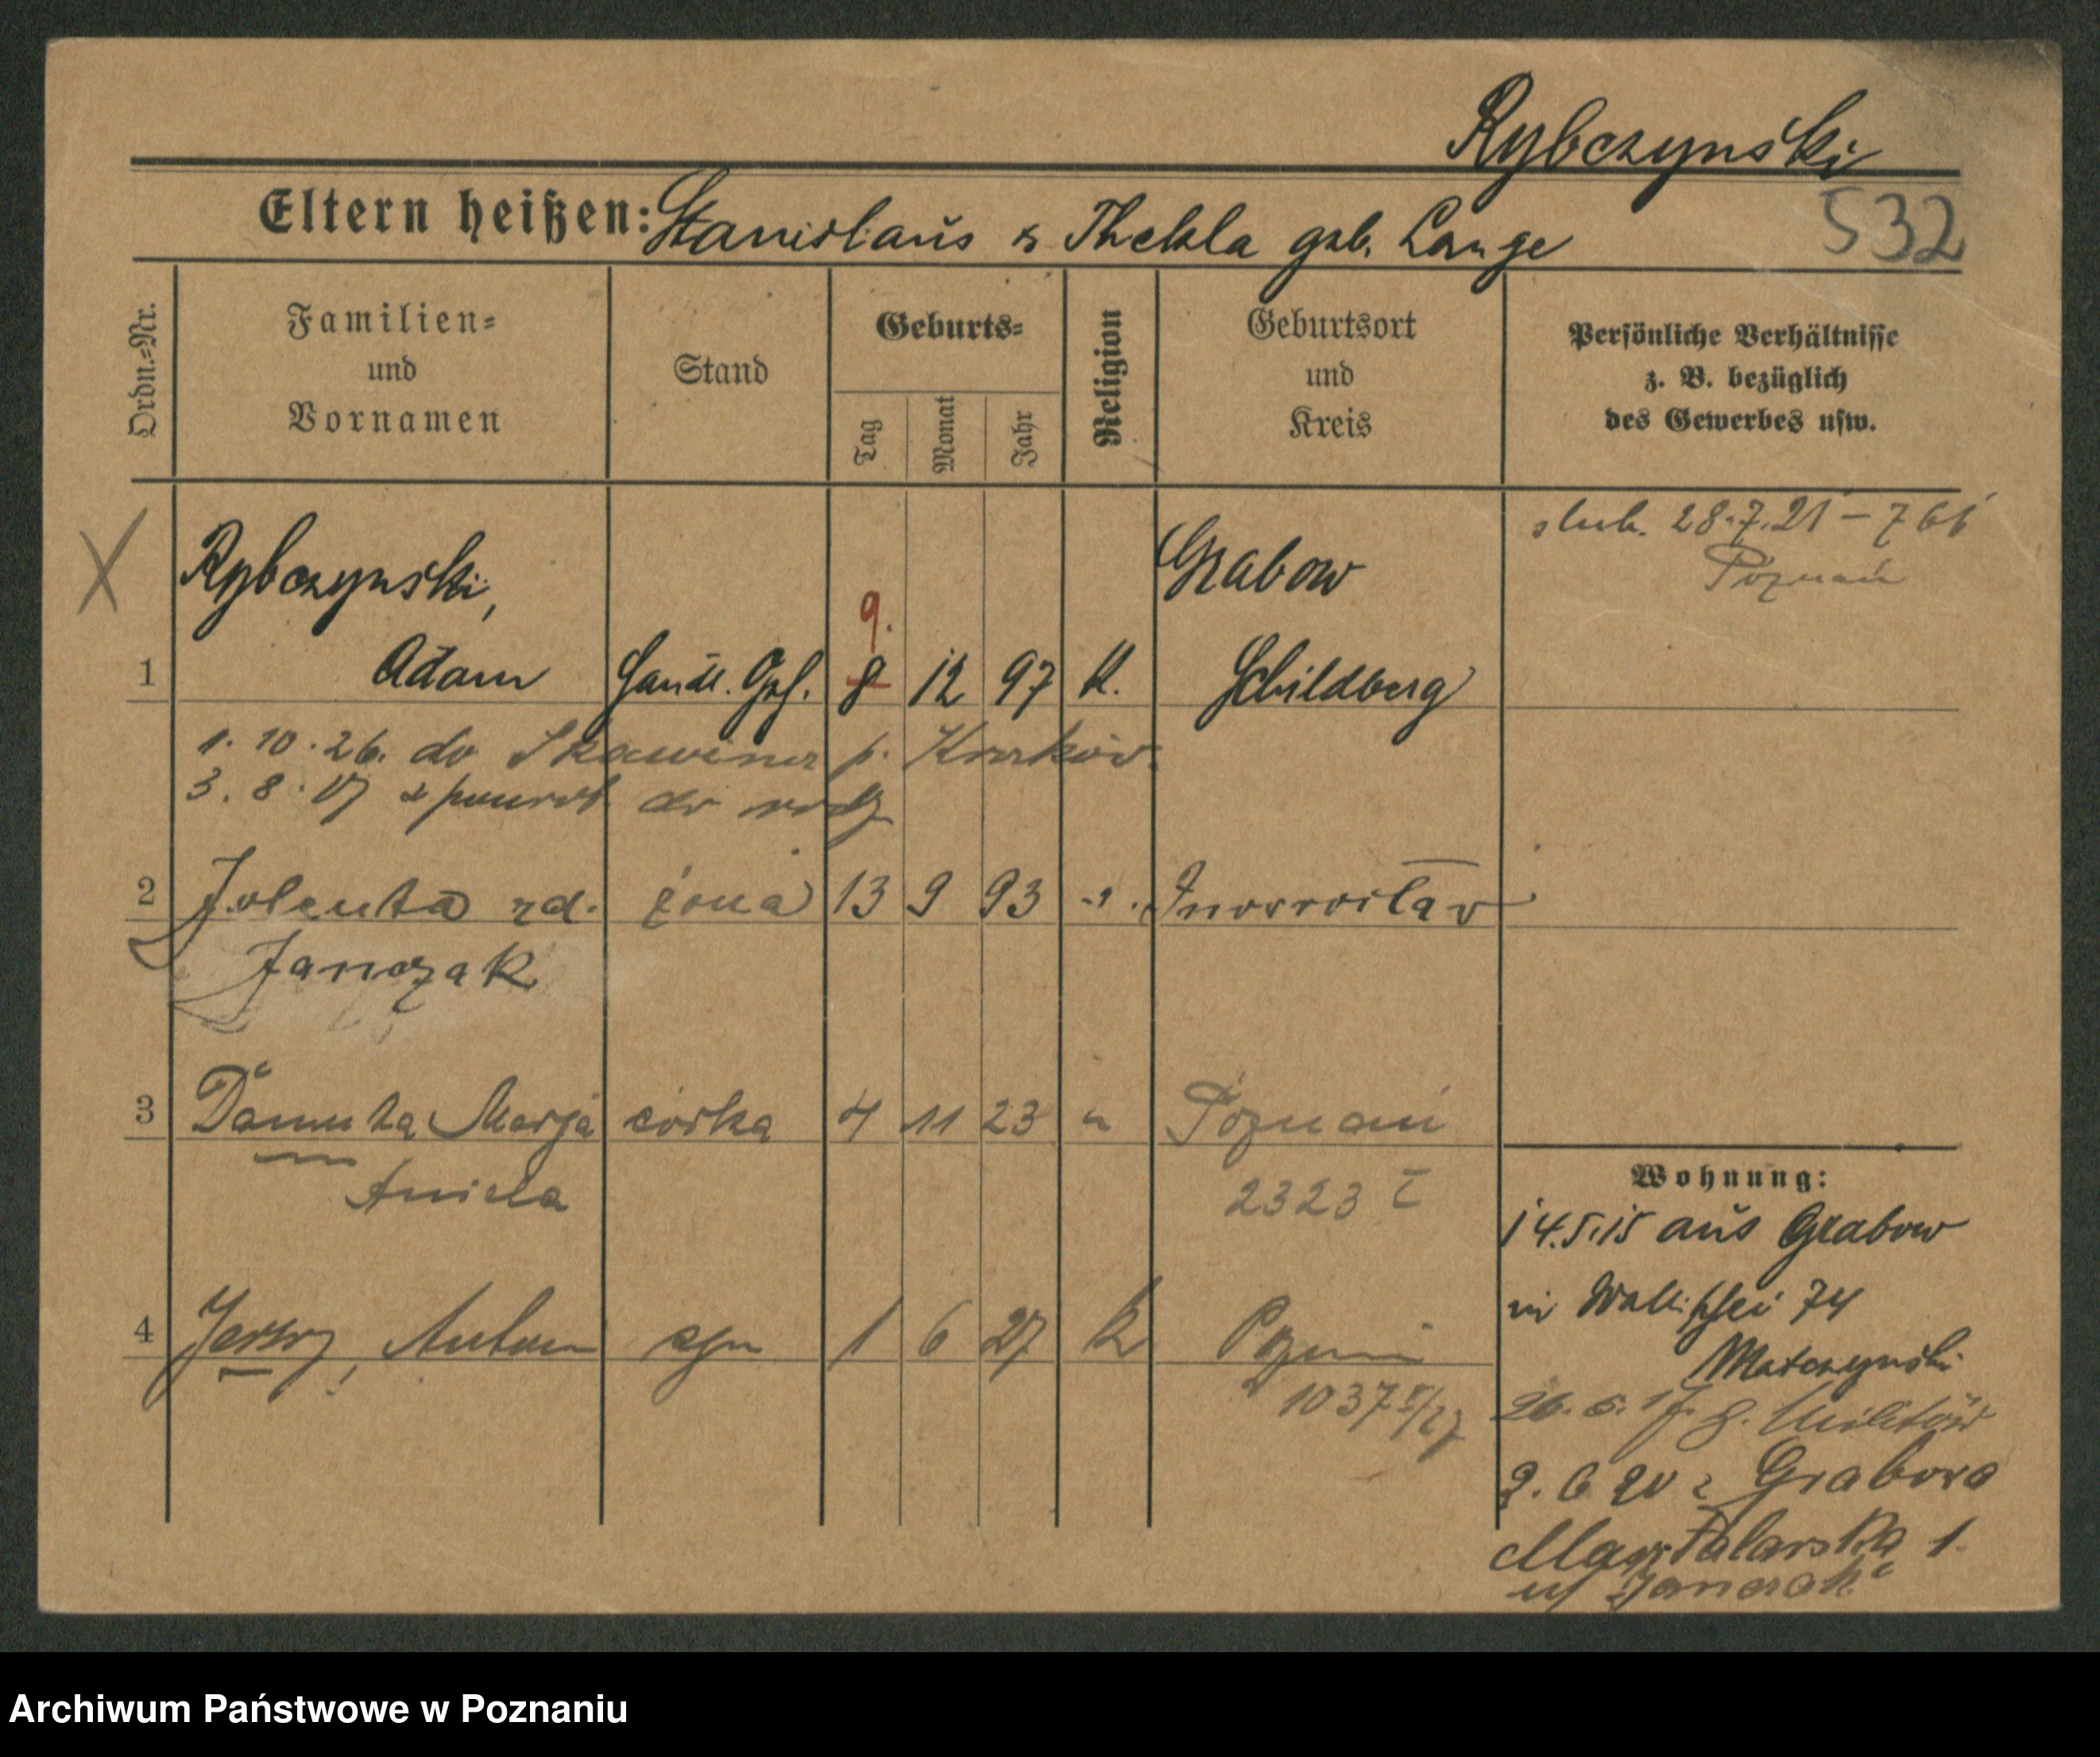 Rybczynski
Eltern heißen: Stanislaus & Thekla geb. Lange
532
Ordn.-Nr.
Familien-
und
Vornamen
Stand
Geburts-
Tag
Monat
Jahr
Religion
Geburtsort
und
Kreis
Persönliche Verhältnisse
z. B. bezüglich
des Gewerbes usw.
X
Rybczynski,
Grabow
ślub. 28.7.21 – 766
Poznań
9.
1 Adam Handl. Geh. 8 12 97 K. Schildberg
1. 10. 26. do Skawina p. Kraków.
3. 8. z powrot do
2 Jolenta zd. żona 13 9 93 -"- Inowrocław
Janczak
3 Danuta Marja córka 4 11 23 " Poznań
Aniela
2323
4 Jerzy, Antoni syn 1 6 27 k Poznań
1037 /27
Wohnung:
14.5.15 aus Grabow
in Wallischei 74
Matczynski
26. 6. 17. z. Militär
2. 6 20 z Grabowa
Marstalarska 1
u/ Janczak
Archiwum Państwowe w Poznaniu